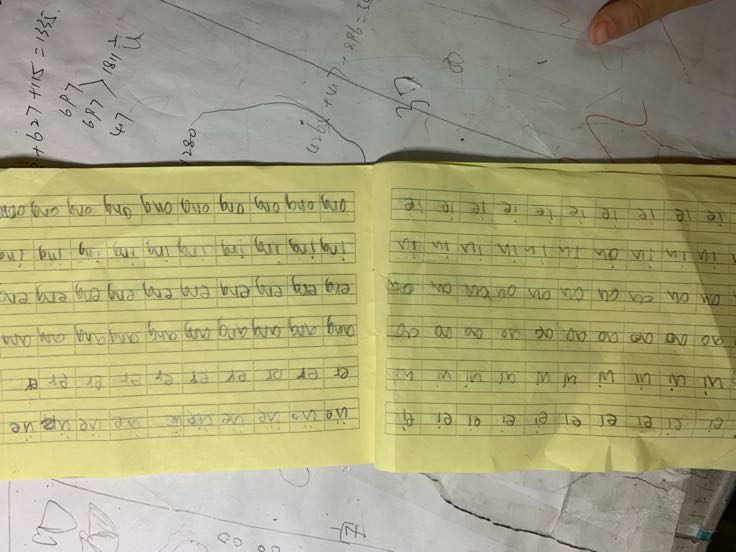 ei ei ei ei ei ei ei ei ei ei
ui ui ui ui ui ui ui ui ui ui
ao ao ao ao ao ao ao ao ao ao
ou ou ou ou ou ou ou ou ou ou
iu iu iu iu iu iu iu iu iu iu
ie ie ie ie ie ie ie ie ie ie
üe üe üe üe üe üe üe üe üe üe
er er er er er er er er er er
ang ang ang ang ang ang ang ang ang ang
eng eng eng eng eng eng eng eng eng eng
ing ing ing ing ing ing ing ing ing ing
ong ong ong ong ong ong ong ong ong ong
+627+115=1335
687
687
47
1280